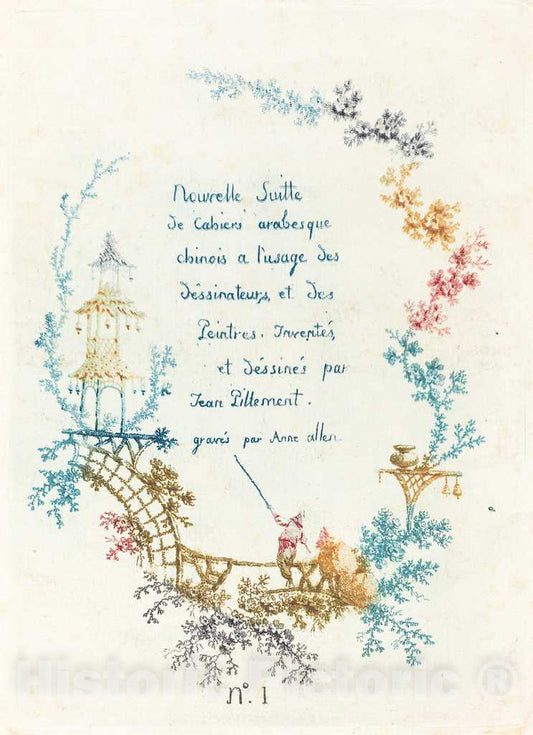 Nouvelle Suitte
de Cahiers arabesque
chinois a l'usage des
déssinateurs, et des
Peintres. Inventés,
et déssinés par
Jean Pillement.
gravés par Anne allen.
Historic Pictoric ®
n.° 1